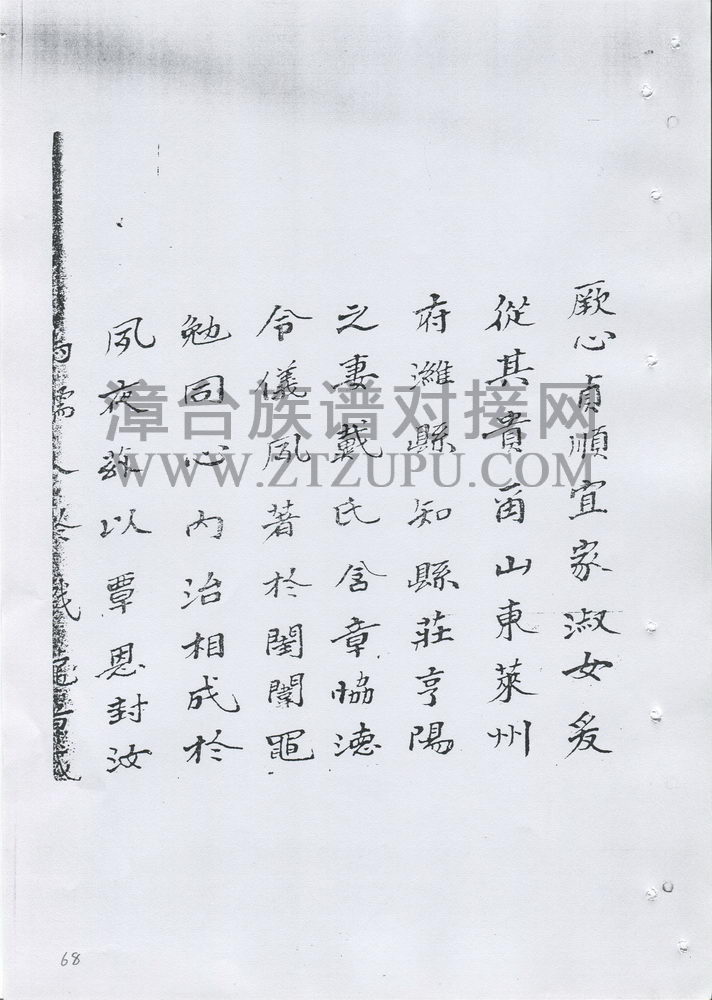 厥心貞順宜家淑女爰
從其貴甭山東萊州
府濰縣知縣莊亨陽
之妻戴氏含章協德
令儀夙著於閨闈黽
勉同心內治相成於
夙夜兹以覃恩封汝
孺人
漳台族谱对接网
WWW.ZTZUPU.COM
68